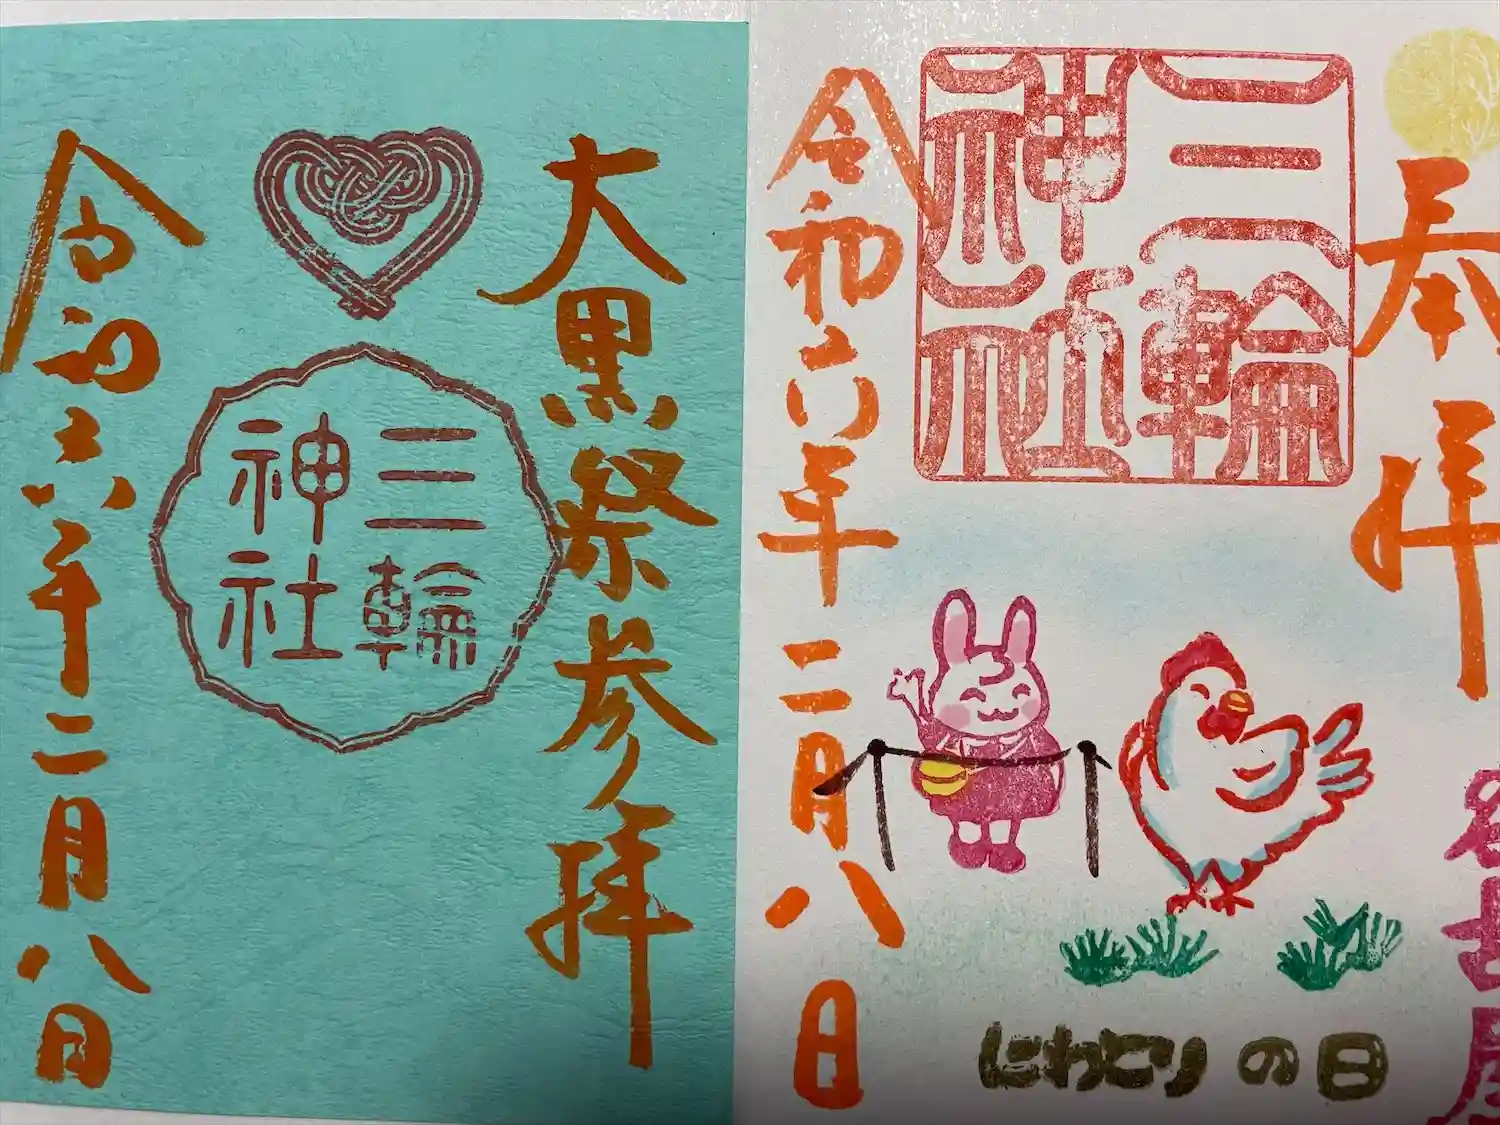 大黒祭参拝
三輪
神社
令和六年二月八日
奉拝
名古屋
三輪
神社
令和六年二月八日
にわとりの日